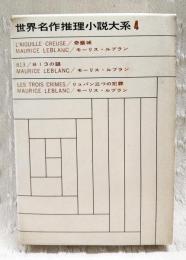 世界名作推理小説大系 4
L'AIGUILLE CREUSE／奇巌城
MAURICE LEBLANC／モーリス・ルブラン
813／813の謎
MAURICE LEBLANC／モーリス・ルブラン
LES TROIS CRIMES／リュパン三つの犯罪
MAURICE LEBLANC／モーリス・ルブラン